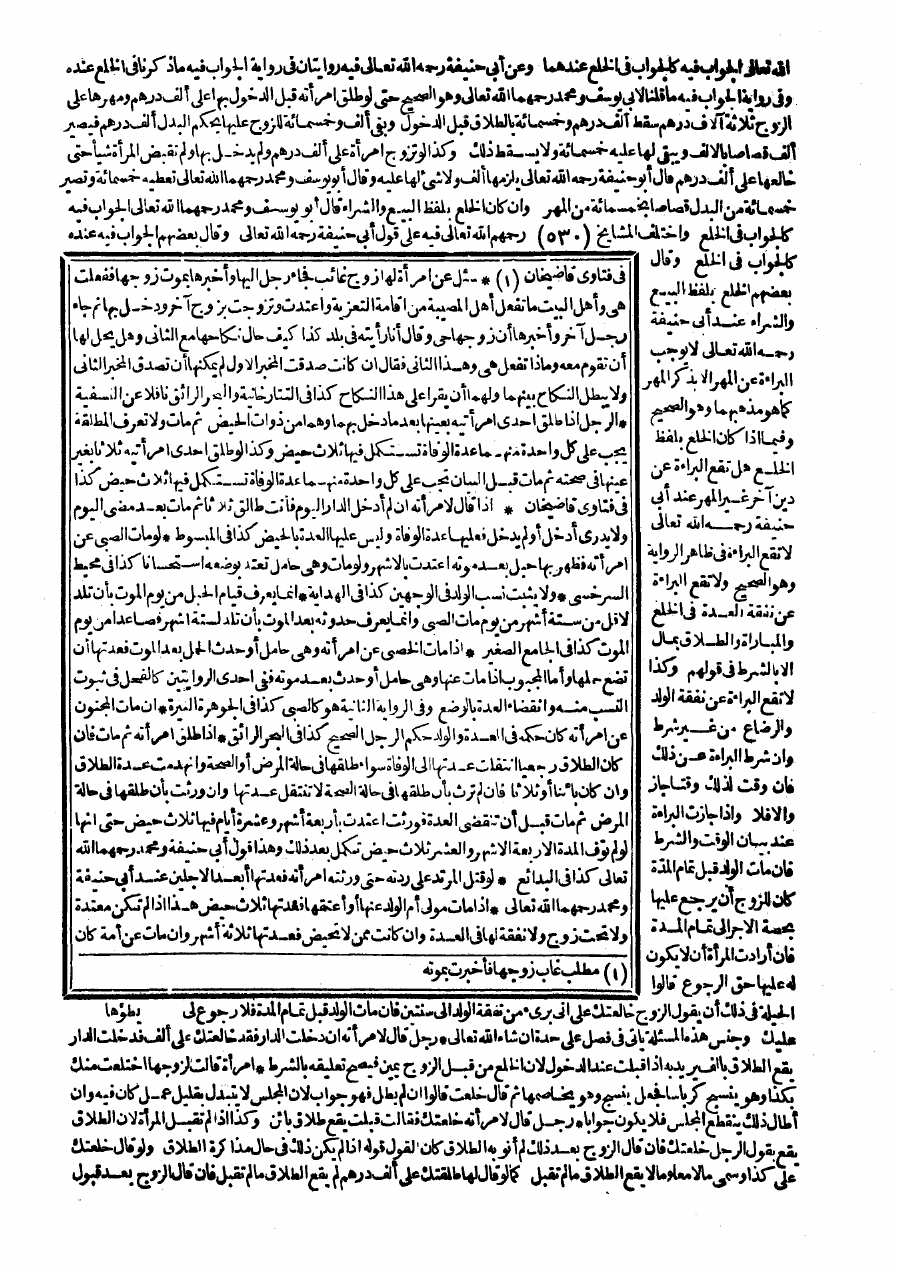 الله تعالى الجواب فيه كالجواب في الخلع عندهما وعن أبي حنيفة رحمه الله تعالى فيه روايتان في رواية الجواب فيه ما ذكرنا في الخلع عنده
وفي رواية الجواب فيه ما قلنا لابي يوسف ومحمد رحمهما الله تعالى وهو الصحيح حتى لو طلق امرأته قبل الدخول بها على ألف درهم ومهرها على
الزوج ثلاثة آلاف درهم سقط ألف درهم وخمسمائة بالطلاق قبل الدخول وبقي ألف وخمسمائة للزوج عليها بحكم البدل ألف درهم فيصير
ألف قصاصا بالالف ويبقى لها عليه خمسمائة ولا يسقط ذلك وكذا لو تزوج امرأة على ألف درهم ولم يدخل بها ولم تقبض المرأة شيأ حتى
خالعها على ألف درهم قال أبو حنيفة رحمه الله تعالى يلزمها ألف ولا شئ لها عليه وقال أبو يوسف ومحمد رحمهما الله تعالى تعطيه خمسمائة وتصير
خمسمائة من البدل قصاصا بخمسمائة من المهر وان كان الخلع بلفظ البيع والشراء قال أبو يوسف ومحمد رحمهما الله تعالى الجواب فيه
كالجواب في الخلع واختلف المشايخ (٥٣٠) رحمهم الله تعالى فيه على قول أبي حنيفة رحمه الله تعالى وقال بعضهم الجواب فيه عنده
كالجواب في الخلع وقال
بعضهم الخلع بلفظ البيع
والشراء عند أبي حنيفة
رحمه الله تعالى لا يوجب
البراءة عن المهر الا بذكر المهر
كما هو مذهبهما وهو الصحيح
وفيما اذا كان الخلع بلفظ
الخلع هل تقع البراءة عن
دين آخر غير المهر عند أبي
حنيفة رحمه الله تعالى
لا تقع البراءة في ظاهر الرواية
وهو الصحيح ولا تقع البراءة
عن نفقة العدة في الخلع
والمباراة والطلاق بمال
الا بالشرط في قولهم وكذا
لا تقع البراءة عن نفقة الولد
والرضاع من غير شرط
وان شرط البراءة عن ذلك
فان وقت لذلك وقتا جاز
والا فلا واذا جازت البراءة
عند بيان الوقت والشرط
فان مات الولد قبل تمام المدة
كان للزوج أن يرجع عليها
بحصة الاجر الى تمام المدة
فان أرادت المرأة أن لا يكون
له عليها حق الرجوع قالوا
في فتاوى قاضيخان (١) * سئل عن امرأة لها زوج غائب فجاء رجل اليها وأخبرها بموت زوجها ففعلت
هي وأهل البيت ما تفعل أهل المصيبة من اقامة التعزية واعتدت وتزوجت بزوج آخر ودخل بها ثم جاء
رجل آخر وأخبرها أن زوجها حي وقال أنا رأيته في بلد كذا كيف حال نكاحها مع الثاني وهل يحل لها
أن تقوم معه وماذا تفعل هي وهذا الثاني فقال ان كانت صدقت المخبر الاول لم يمكنها أن تصدق المخبر الثاني
ولا يبطل النكاح بينهما ولهما أن يقرا على هذا النكاح كذا في التتارخانية والبحر الرائق نا قلا عن النسفية
*الرجل اذا طلق احدى امرأتيه بعينها بعد ما دخل بهما وهما من ذوات الحيض ثم مات ولا تعرف المطلقة
يجب على كل واحدة منهما عدة الوفاة تستكمل فيها ثلاث حيض وكذا لو طلق احدى امرأتيه ثلاثا بغير
عينها في صحته ثم مات قبل البيان يجب على كل واحدة منهما عدة الوفاة تستكمل فيها ثلاث حيض كذا
في فتاوى قاضيخان * اذا قال لامرأته ان لم أدخل الدار اليوم فأنت طالق ثلاثا ثم مات بعد مضى اليوم
ولا يدرى أدخل أو لم يدخل فعليها عدة الوفاة وليس عليها العدة بالحيض كذا في المبسوط *لو مات الصبي عن
امرأته فظهر بها حبل بعد موته اعتدت بالاشهر ولو مات وهي حامل تعتد بوضعه استحسانا كذا في محيط
السرخسي *ولا يثبت نسب الولد في الوجهين كذا في الهداية *انما يعرف قيام الحبل من يوم الموت بأن تلد
لاقل من ستة أشهر من يوم مات الصبي وانما يعرف حدوثه بعد الموت بأن تلد لستة أشهر فصاعدا من يوم
الموت كذا في الجامع الصغير * اذا مات الخصي عن امرأته وهي حامل أو حدث الحمل بعد الموت فعدتها أن
تضع حملها وأما المجبوب اذا مات عنها وهي حامل أو حدث بعد موته ففي احدى الروايتين كالفحل في ثبوت
النسب منه وانقضاء العدة بالوضع وفي الرواية الثانية هو كالصبي كذا في الجوهرة النيرة *ان مات المجنون
عن امرأته كان حكمه في العدة والولد حكم الرجل الصحيح كذا في البحر الرائق *اذا طلق امرأته ثم مات فان
كان الطلاق رجعيا انتقلت عدتها الى الوفاة سواء طلقها في حالة المرض أو الصحة وانهدمت عدة الطلاق
وان كان بائنا أو ثلاثا فان لم ترث بأن طلقها في حالة الصحة لا تنتقل عدتها وان ورثت بأن طلقها في حالة
المرض ثم مات قبل أن تنقضى العدة فورثت اعتدت بأربعة أشهر وعشرة أيام فيها ثلاث حيض حتى انها
لو لم توف المدة الاربعة الاشهر والعشر ثلاث حيض تكمل بعد ذلك وهذا قول أبي حنيفة ومحمد رحمهما الله
تعالى كذا في البدائع * لو قتل المرتد على ردته حتى ورثته امرأته فعدتها أبعد الاجلين عند أبي حنيفة
ومحمد رحمهما الله تعالى *اذا مات مولى أم الولد عنها أو أعتقها فعدتها ثلاث حيض هذا اذا لم تكن معتدة
ولا تحت زوج ولا نفقة لها في العدة وان كانت ممن لا تحيض فعدتها ثلاثة أشهر وان مات عن أمة كان
(١) مطلب غاب زوجها فأخبرت بموته
الحيلة في ذلك أن يقول الزوج خالعتك على اني برىء من نفقة الولد الى سنتين فان مات الولد قبل تمام المدة فلا رجوع لي يطؤها
عليك وجنس هذه المسئلة يأتي في فصل على حدة ان شاء الله تعالى *رجل قال لامرأته ان دخلت الدار فقد خالعتك على ألف فدخلت الدار
يقع الطلاق بألف يريد به اذا قبلت عند الدخول لان الخلع من قبل الزوج يمين فيصح تعليقه بالشرط *امرأة قالت لزوجها اختلعت منك
بكذا وهو ينسج كرباسا فجعل ينسج وهو يخاصمها ثم قال خلعت قالوا ان لم يطل فهو جواب لان المجلس لا يتبدل بقليل عمل كان فيه وان
أطال ذلك ينقطع المجلس فلا يكون جوابا *رجل قال لامرأته خلعتك فقالت قبلت يقع طلاق بائن وكذا اذا لم تقبل المرأة لان الطلاق
يقع بقول الرجل خلعتك فان قال الزوج بعد ذلك لم أنو به الطلاق كان القول قوله اذا لم يكن ذلك في حال مذاكرة الطلاق ولو قال خلعتك
على كذا وسمى مالا معلوما لا يقع الطلاق ما لم تقبل كما لو قال لها طلقتك على ألف درهم لم يقع الطلاق ما لم تقبل فان قال الزوج بعد قبول